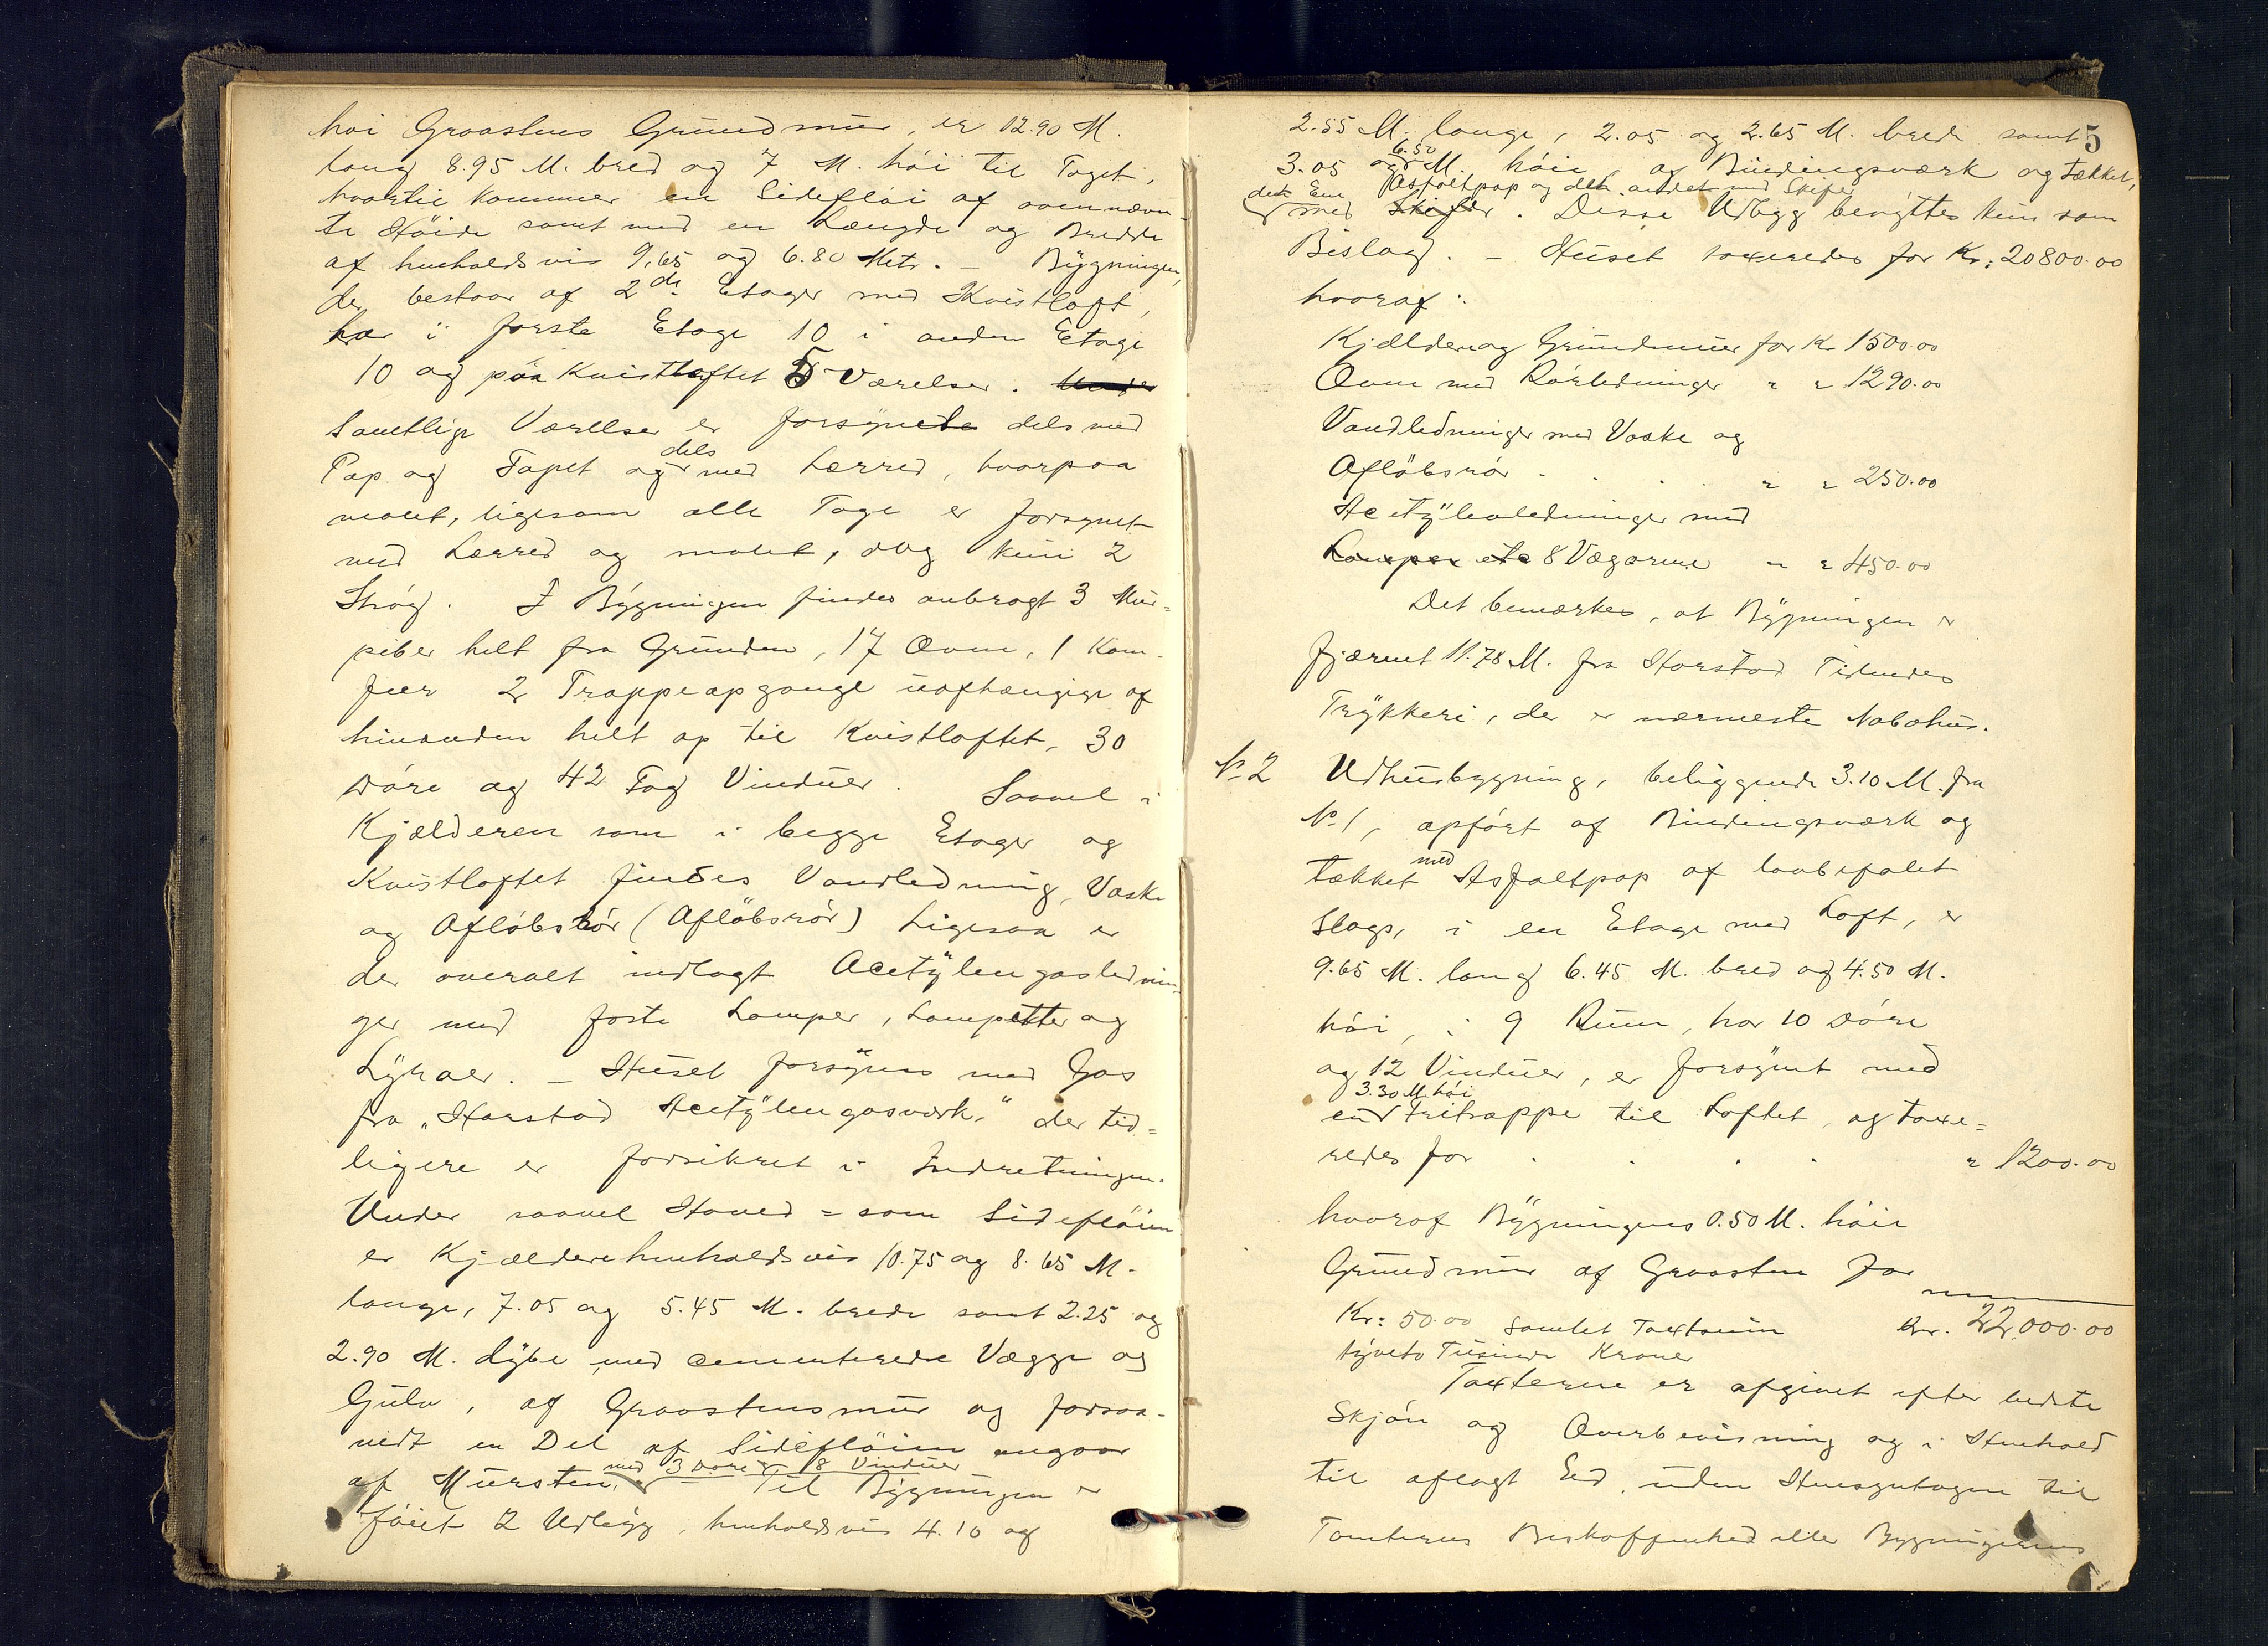 høi Graastens Grundmur, er 12.90 M.
lang 8.95 M. bred og 7 M. høi til Taget,
hvortil kommer en Sidefløi af ovennævn-
te Høide samt med en Længde og Bredde
af henholdsvis 9.65 og 6.80 Metr. – Bygningen,
der bestaar af 2de Etager med Kvistloft,
har i første Etage 10 i anden Etage
10 og paa Kvistloftet 5 Værelser.
Samtlige Værelser er forsynede dels med
Pap og Tapet og dels med Lærred, hvorpaa
malet, ligesom alle Tage er forsynet
med Lærred og malet, dog kun 2
Strøg. I Bygningen findes anbragt 3 Mur=
piber helt fra Grunden, 17 Ovne, 1 Kom-
fur 2 Trappeopgange uafhængige af
hinanden helt op til Kvistloftet, 30
Døre og 42 Fag Vinduer. Saavel i
Kjælderen som i begge Etager og
Kvistloftet findes Vandledning, Vaske
og Afløbsrør (Afløbsrør) Ligesaa er
der overalt indlagt Acetylengaslednin-
ger med faste Lamper, Lampetter og
Lyraer. – Huset forsynes med Gas
fra „Harstad Acetylengasværk," der tid=
ligere er forsikret i Indretningen.
Under saavel Hoved = som Sidefløien
er Kjældere henholdsvis 10.75 og 8.65 M.
lange, 7.05 og 5.45 M. brede samt 2.25 og
2.90 M. dybe med cementerede Vægge og
Gulv, af Graastensmur og forsaa-
vidt en Del af Sidefløien angaar
af Mursten, med 3 Døre og 8 Vinduer – Til Bygningen er
føiet 2 Udbygg, henholdsvis 4.10 og
5
2.55 M. lange, 2.05 og 2.65 M. brede samt
3.05 og 6.50 M. høie, af Bindingsværk og tækket,
det Ene med Skifer Asfaltpap og det andet med Skifer. Disse Udbygg benyttes kun som
Bislag. – Huset taxeredes for Kr: 20800.00
hvoraf:
Kjældere og Grundmur for Kr 1500.00
Ovne med Rørledninger " " 1290.00
Vandledninger med Vaske og
Afløbsrør . . . . " " 250.00
Acetylenledninger med
Lamper etc 8 Vægarme " " 450.00
Det bemærkes, at Bygningen er
fjærnet 11.78 M. fra Harstad Tidendes
Trykkeri, der er nærmeste Nabohus.
No 2 Udhusbygning, beliggende 3.10 M. fra
No 1, opført af Bindingsværk og
tækket med Asfaltpap af lovbefalet
Slags, i en Etage med Loft, er
9.65 M. lang 6.45 M. bred og 4.50 M.
høi, i 9 Rum, har 10 Døre
og 12 Vinduer, er forsynt med
en 3.30 M. høi Fritrappe til Loftet, og taxe=
redes for . . . . " 1200.00
hvoraf Bygningens 0.50 M. høie
Grundmur af Graasten for
Kr: 50.00 samlet Taxtsum Kr. 22,000.00
tyveto Tusinde Kroner
Taxterne er afgivet efter bedste
Skjøn og Overbevisning og i Henhold
til aflagt Ed, uden Hensyntagen til
Tomternes Beskaffenhed eller Bygningernes